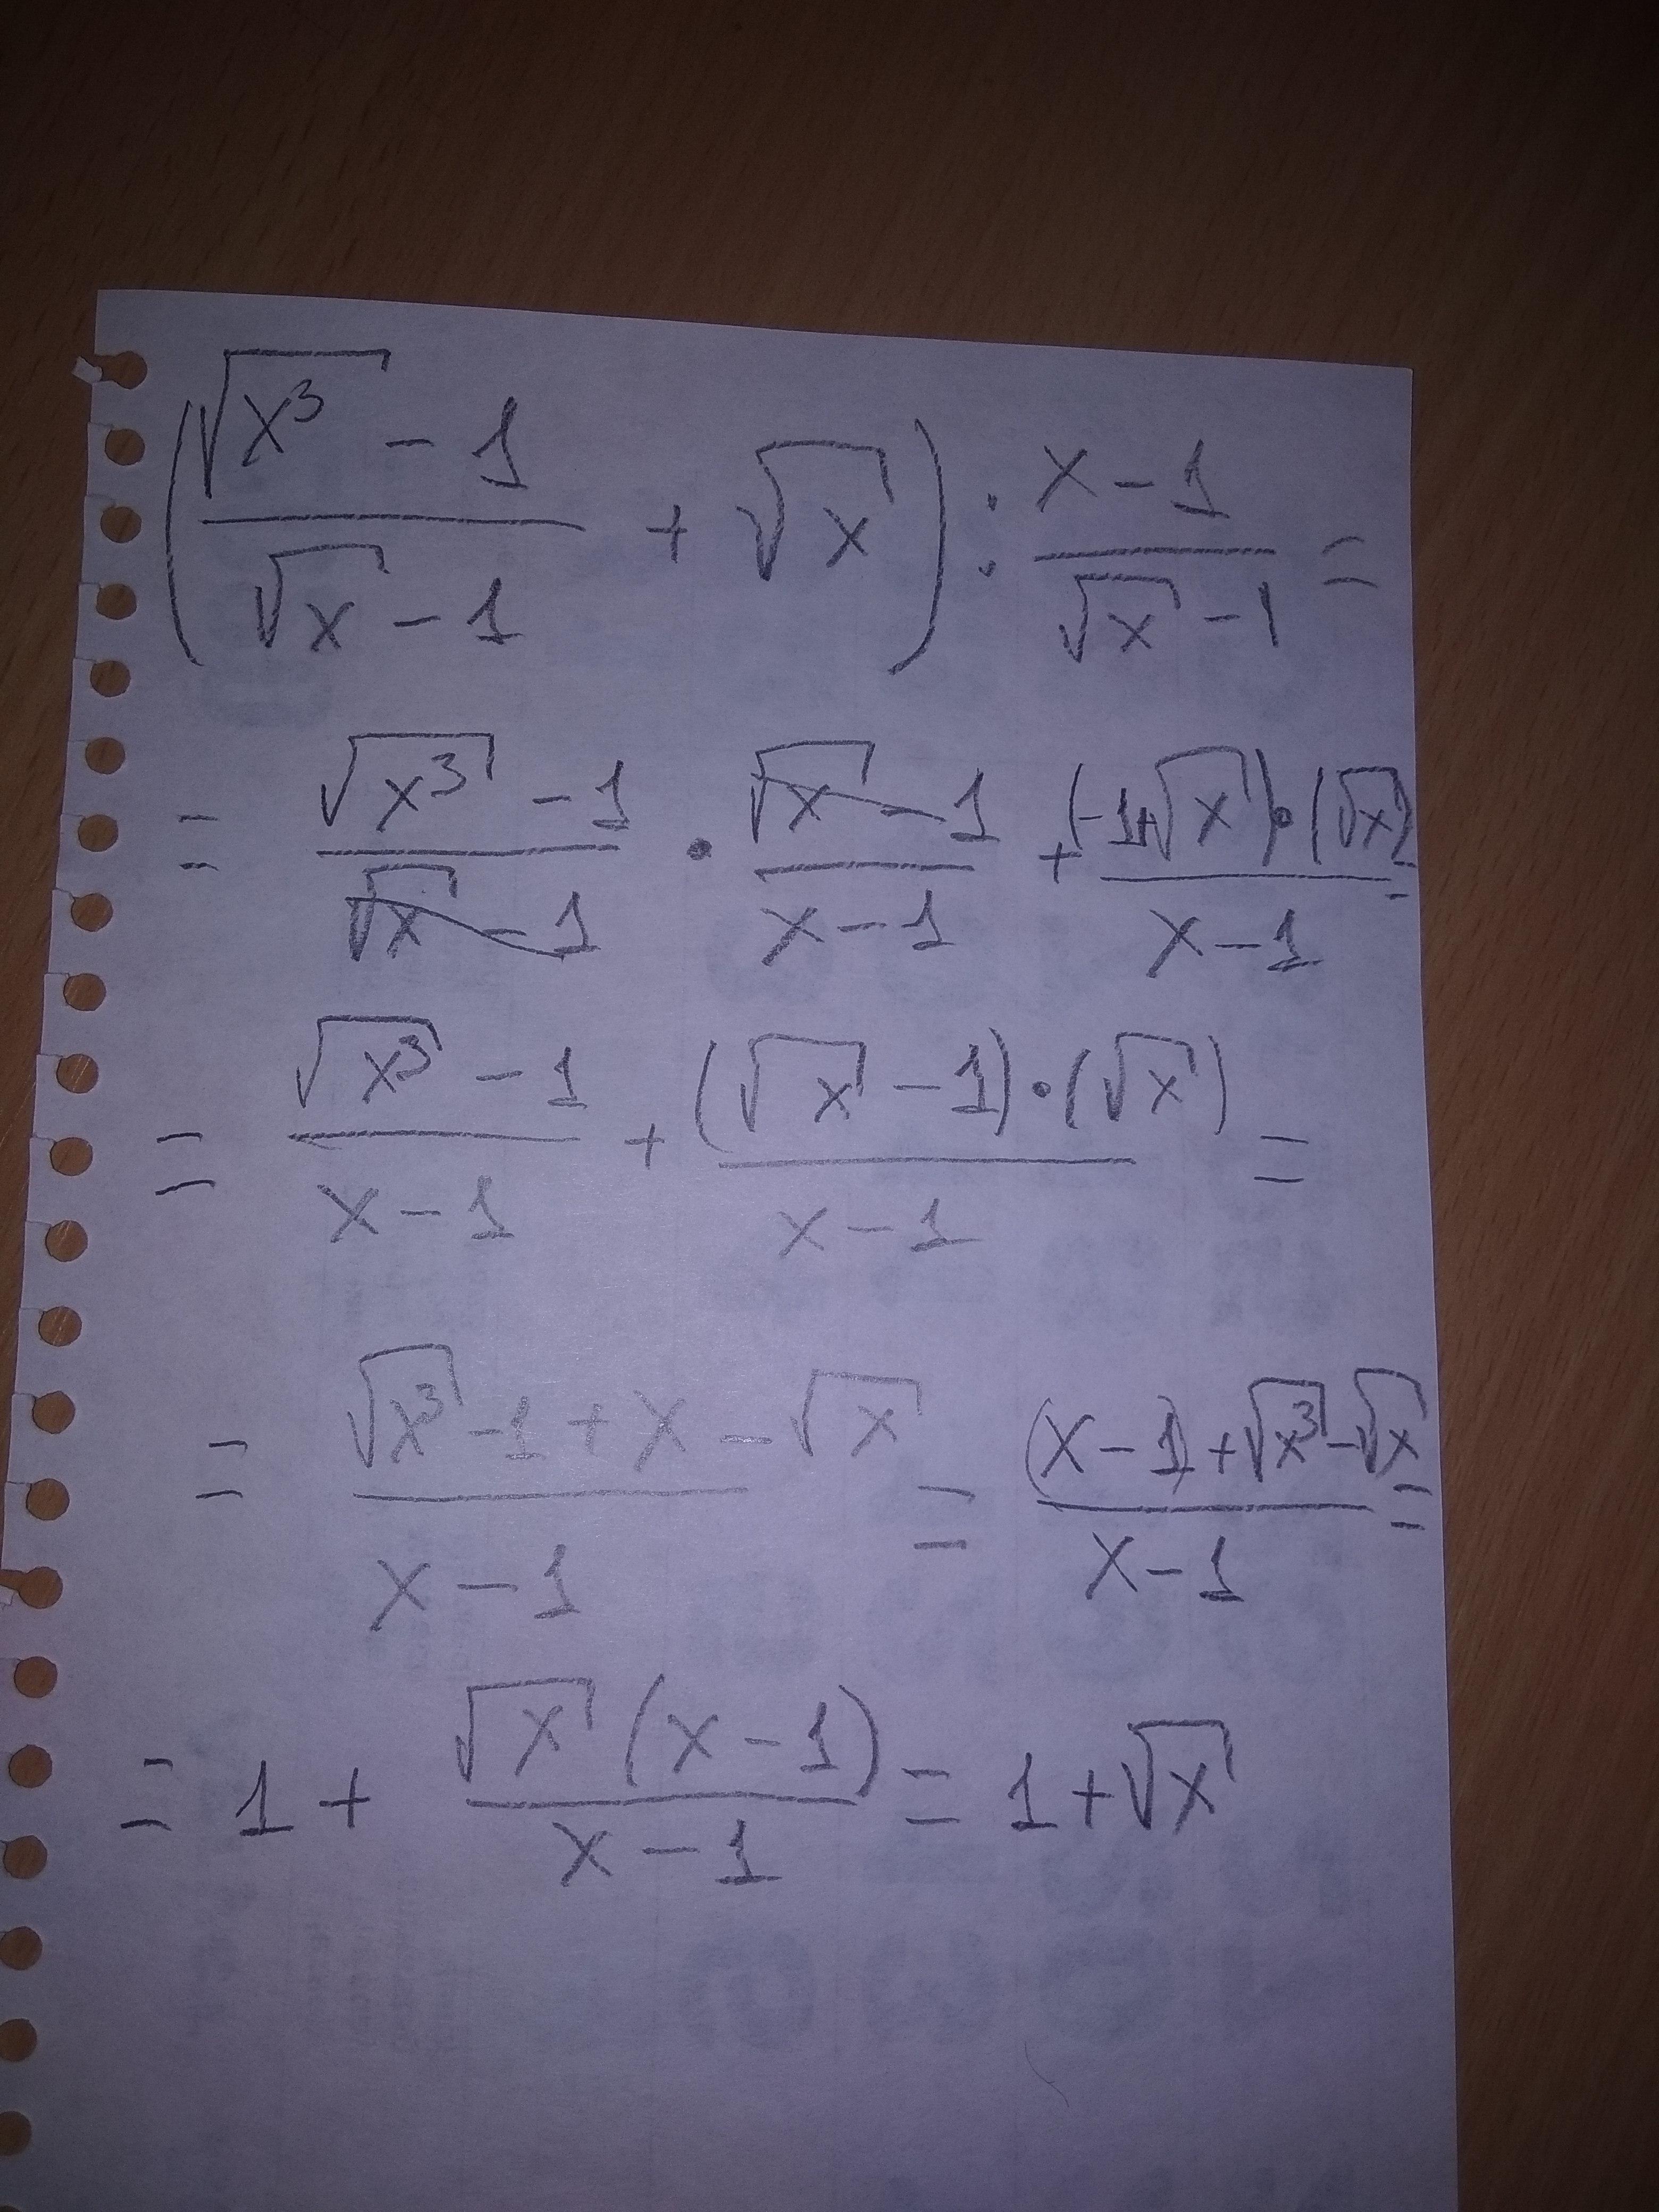 (√x³ - 1 / √x - 1 + √x) : x - 1 / √x - 1 =
= √x³ - 1 / √x - 1 · √x - 1 / x - 1 + (-1+√x)·(√x) / x - 1 =
= √x³ - 1 / x - 1 + (√x - 1)·(√x) / x - 1 =
= √x³ - 1 + x - √x / x - 1 = (x - 1) + √x³ - √x / x - 1 =
= 1 + √x (x - 1) / x - 1 = 1 + √x